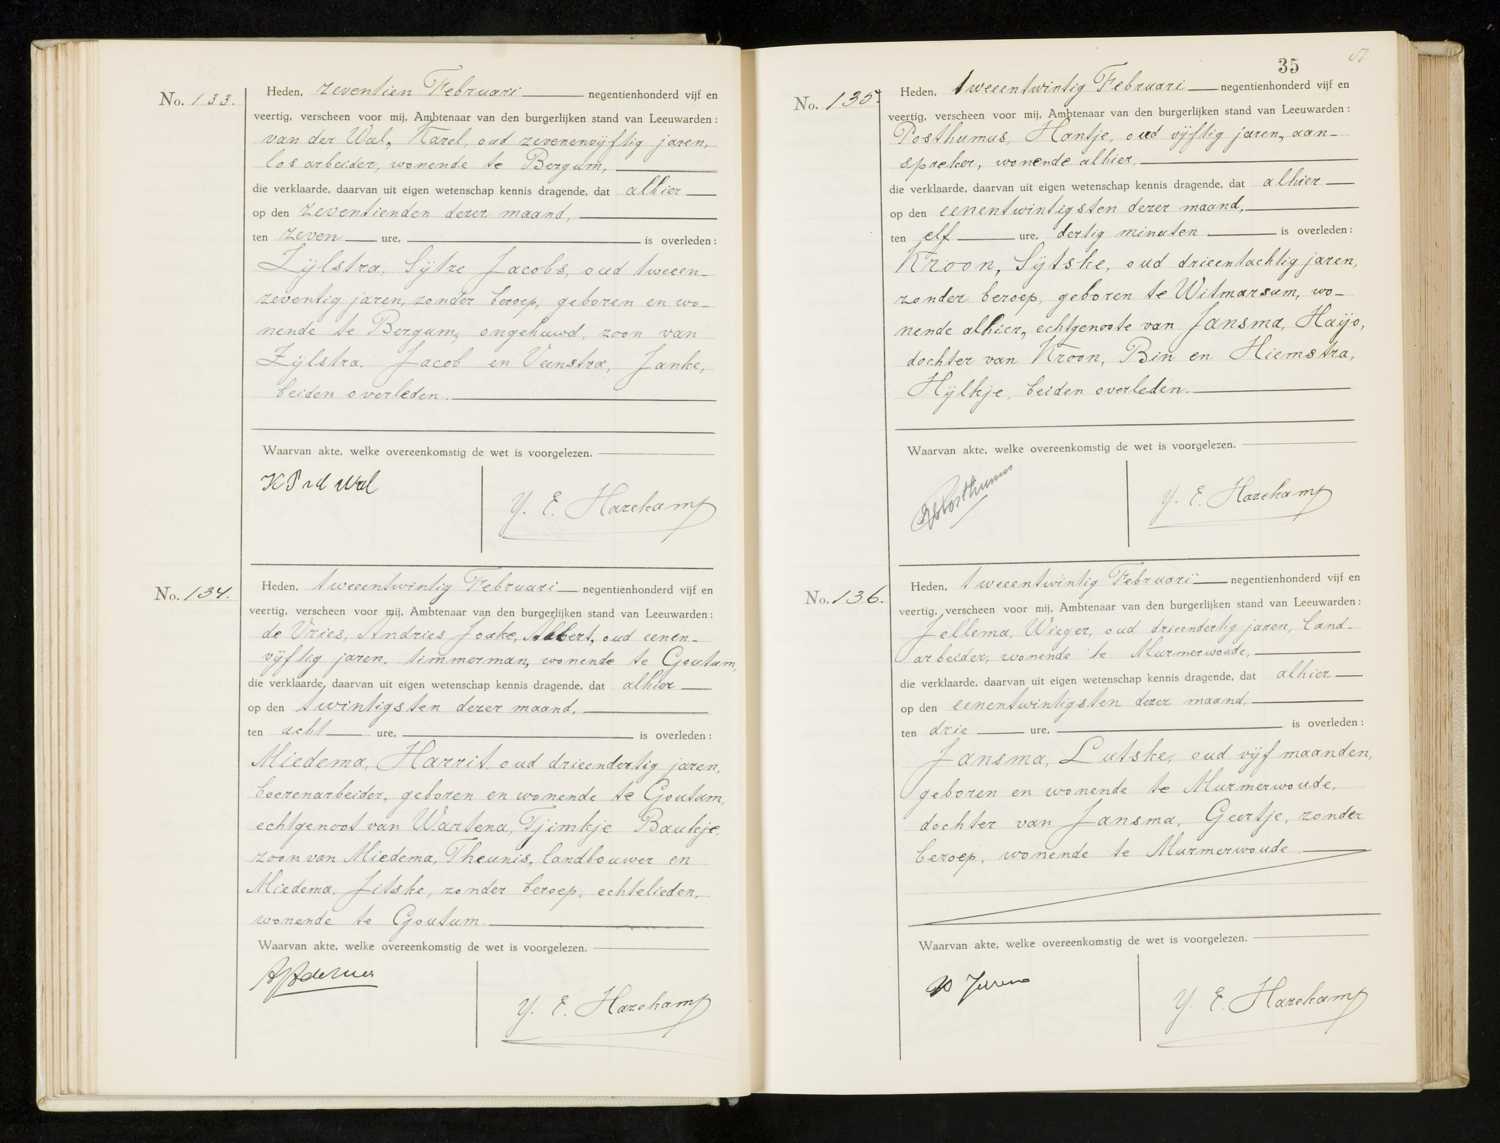 No. 133.
Heden, zeventien Februari negentienhonderd vijf en
veertig, verscheen voor mij, Ambtenaar van den burgerlijken stand van Leeuwarden:
van der Wal, Karel, oud zevenenvijftig jaren,
los arbeider, wonende te Bergum,
die verklaarde, daarvan uit eigen wetenschap kennis dragende, dat alhier
op den zeventienden dezer maand,
ten zeven ure, is overleden:
Zijlstra, Sijtze Jacobs, oud tweeen-
zeventig jaren, zonder beroep, geboren en wo-
nende te Bergum, ongehuwd, zoon van
Zijlstra, Jacob en Veenstra, Janke,
beiden overleden.
Waarvan akte, welke overeenkomstig de wet is voorgelezen.
K P v d Wal
Y. E. Hazekamp
No. 134.
Heden, tweeentwintig Februari negentienhonderd vijf en
veertig, verscheen voor mij, Ambtenaar van den burgerlijken stand van Leeuwarden:
de Vries, Andries Foake, Albert, oud eenen-
vijftig jaren, timmerman, wonende te Goutum,
die verklaarde, daarvan uit eigen wetenschap kennis dragende, dat alhier
op den twintigsten dezer maand,
ten acht ure, is overleden:
Miedema, Harrit, oud drieendertig jaren,
boerenarbeider, geboren en wonende te Goutum,
echtgenoot van Wartena, Tjimkje Baukje,
zoon van Miedema, Theunis, landbouwer en
Miedema, Jitske, zonder beroep, echtelieden,
wonende te Goutum.
Waarvan akte, welke overeenkomstig de wet is voorgelezen.
Y. E. Hazekamp
35
No. 135.
Heden, tweeentwintig Februari negentienhonderd vijf en
veertig, verscheen voor mij, Ambtenaar van den burgerlijken stand van Leeuwarden:
Posthumus, Hantje, oud vijftig jaren, aan-
spreker, wonende alhier.
die verklaarde, daarvan uit eigen wetenschap kennis dragende, dat alhier
op den eenentwintigsten dezer maand,
ten elf ure, dertig minuten is overleden:
Kroon, Sijtske, oud drieentachtig jaren,
zonder beroep, geboren te Witmarsum, wo-
nende alhier, echtgenoote van Jansma, Haijo,
dochter van Kroon, Bin en Hiemstra,
Hijlkje, beiden overleden.
Waarvan akte, welke overeenkomstig de wet is voorgelezen.
Posthumus
Y. E. Hazekamp
No. 136.
Heden, tweeentwintig Februari negentienhonderd vijf en
veertig, verscheen voor mij, Ambtenaar van den burgerlijken stand van Leeuwarden:
Jellema, Wieger, oud drieendertig jaren, land-
arbeider, wonende te Murmerwoude,
die verklaarde, daarvan uit eigen wetenschap kennis dragende, dat alhier
op den eenentwintigsten dezer maand,
ten drie ure, is overleden:
Jansma, Lutske, oud vijf maanden,
geboren en wonende te Murmerwoude,
dochter van Jansma, Geertje, zonder
beroep, wonende te Murmerwoude.
Waarvan akte, welke overeenkomstig de wet is voorgelezen.
Y. E. Hazekamp